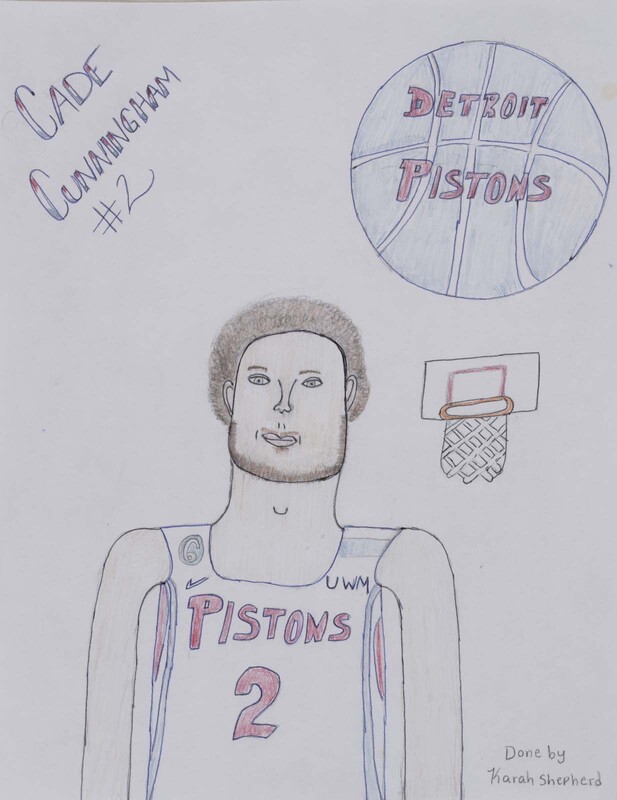 CADE
CUNNINGHAM
#2
DETROIT
PISTONS
6
UWM
PISTONS
2
Done by
Karah Shepherd